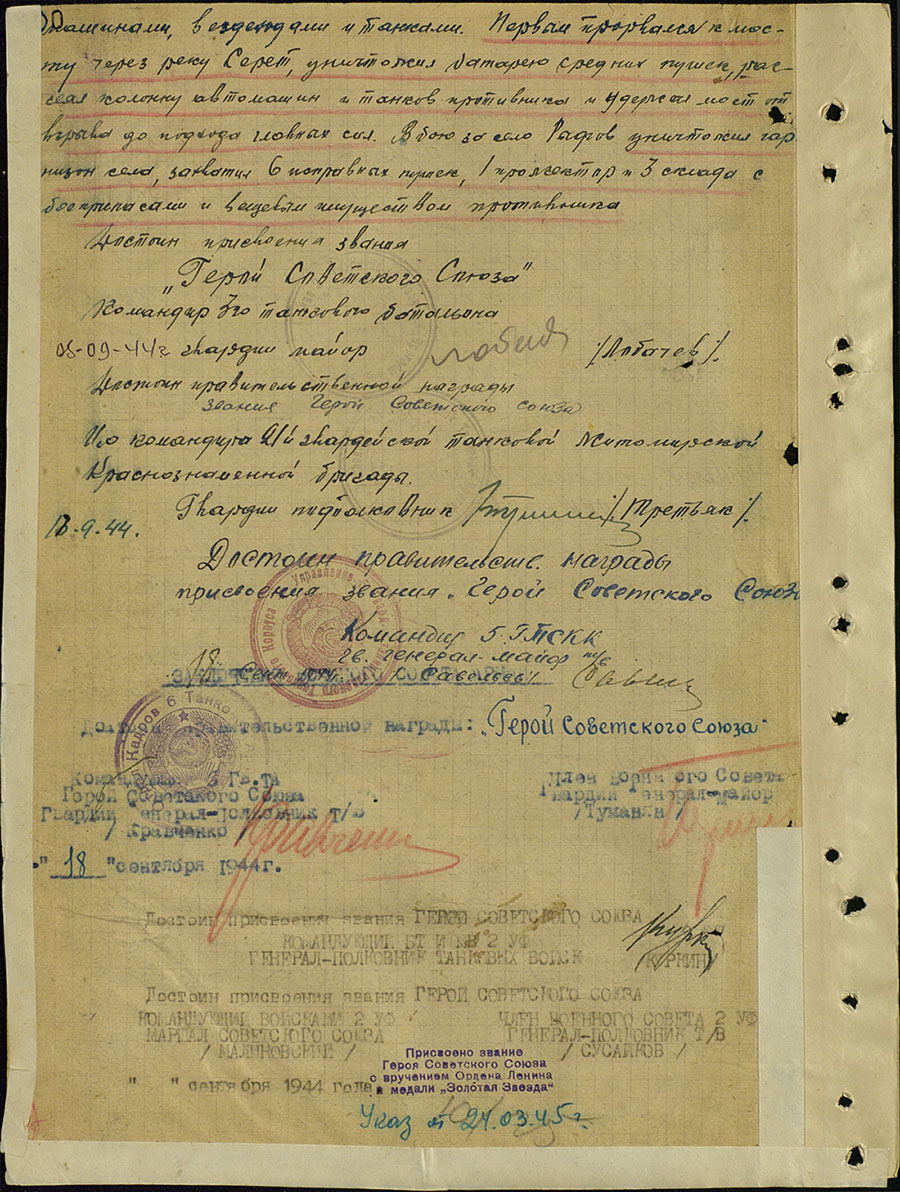 машинами, вездеходами и танками. Первым прорвался к мос-
ту через реку Серет, уничтожил батарею средних пушек, рас-
сеял колонну автомашин и танков противника и удержал мост от
взрыва до подхода главных сил. В бою за село Радгов уничтожил гар
низон села, захватил 6 исправных пушек, 1 прожектор и 3 склада с
боеприпасами и вещевым имуществом противника
Достоин присвоения звания
„Герой Советского Союза"
Командир 3го танкового батальона
08-09-44г гвардии майор /Лобачев/.
Достоин правительственной награды
звания Герой Советского союза
И/о командира 21й гвардейской танковой Житомирской
Краснознаменной бригады.
Гвардии подполковник /Третьяк/.
13.9.44.
Достоин правительств. награды
присвоения звания „Герой Советского Союза
Командир 5 ГТСКК
гв. генерал-майор т/в
18 Сент 1944 /Савельев/
Достоин правительственной награды: „Герой Советского Союза"
Командующий 6 Гв.ТА
Герой Советского Союза
Гвардии генерал-полковник т/в
/ Кравченко /
Член Военного Совета
Гвардии генерал-майор
/Туманян/
"18" сентября 1944г.
Достоин присвоения звания ГЕРОЙ СОВЕТСКОГО СОЮЗА
КОМАНДУЮЩИЙ БТ И МВ 2 УФ
ГЕНЕРАЛ-ПОЛКОВНИК ТАНКОВЫХ ВОЙСК
/КУРКИН/
Достоин присвоения звания ГЕРОЙ СОВЕТСКОГО СОЮЗА
КОМАНДУЮЩИЙ ВОЙСКАМИ 2 УФ
МАРШАЛ СОВЕТСКОГО СОЮЗА
/ МАЛИНОВСКИЙ /
ЧЛЕН ВОЕННОГО СОВЕТА 2 УФ
ГЕНЕРАЛ-ПОЛКОВНИК Т/В
/ СУСАЙКОВ /
" " сентября 1944 года
Присвоено звание
Героя Советского Союза
с вручением Ордена Ленина
и медали „Золотая Звезда"
Указ от 24.03.45г.